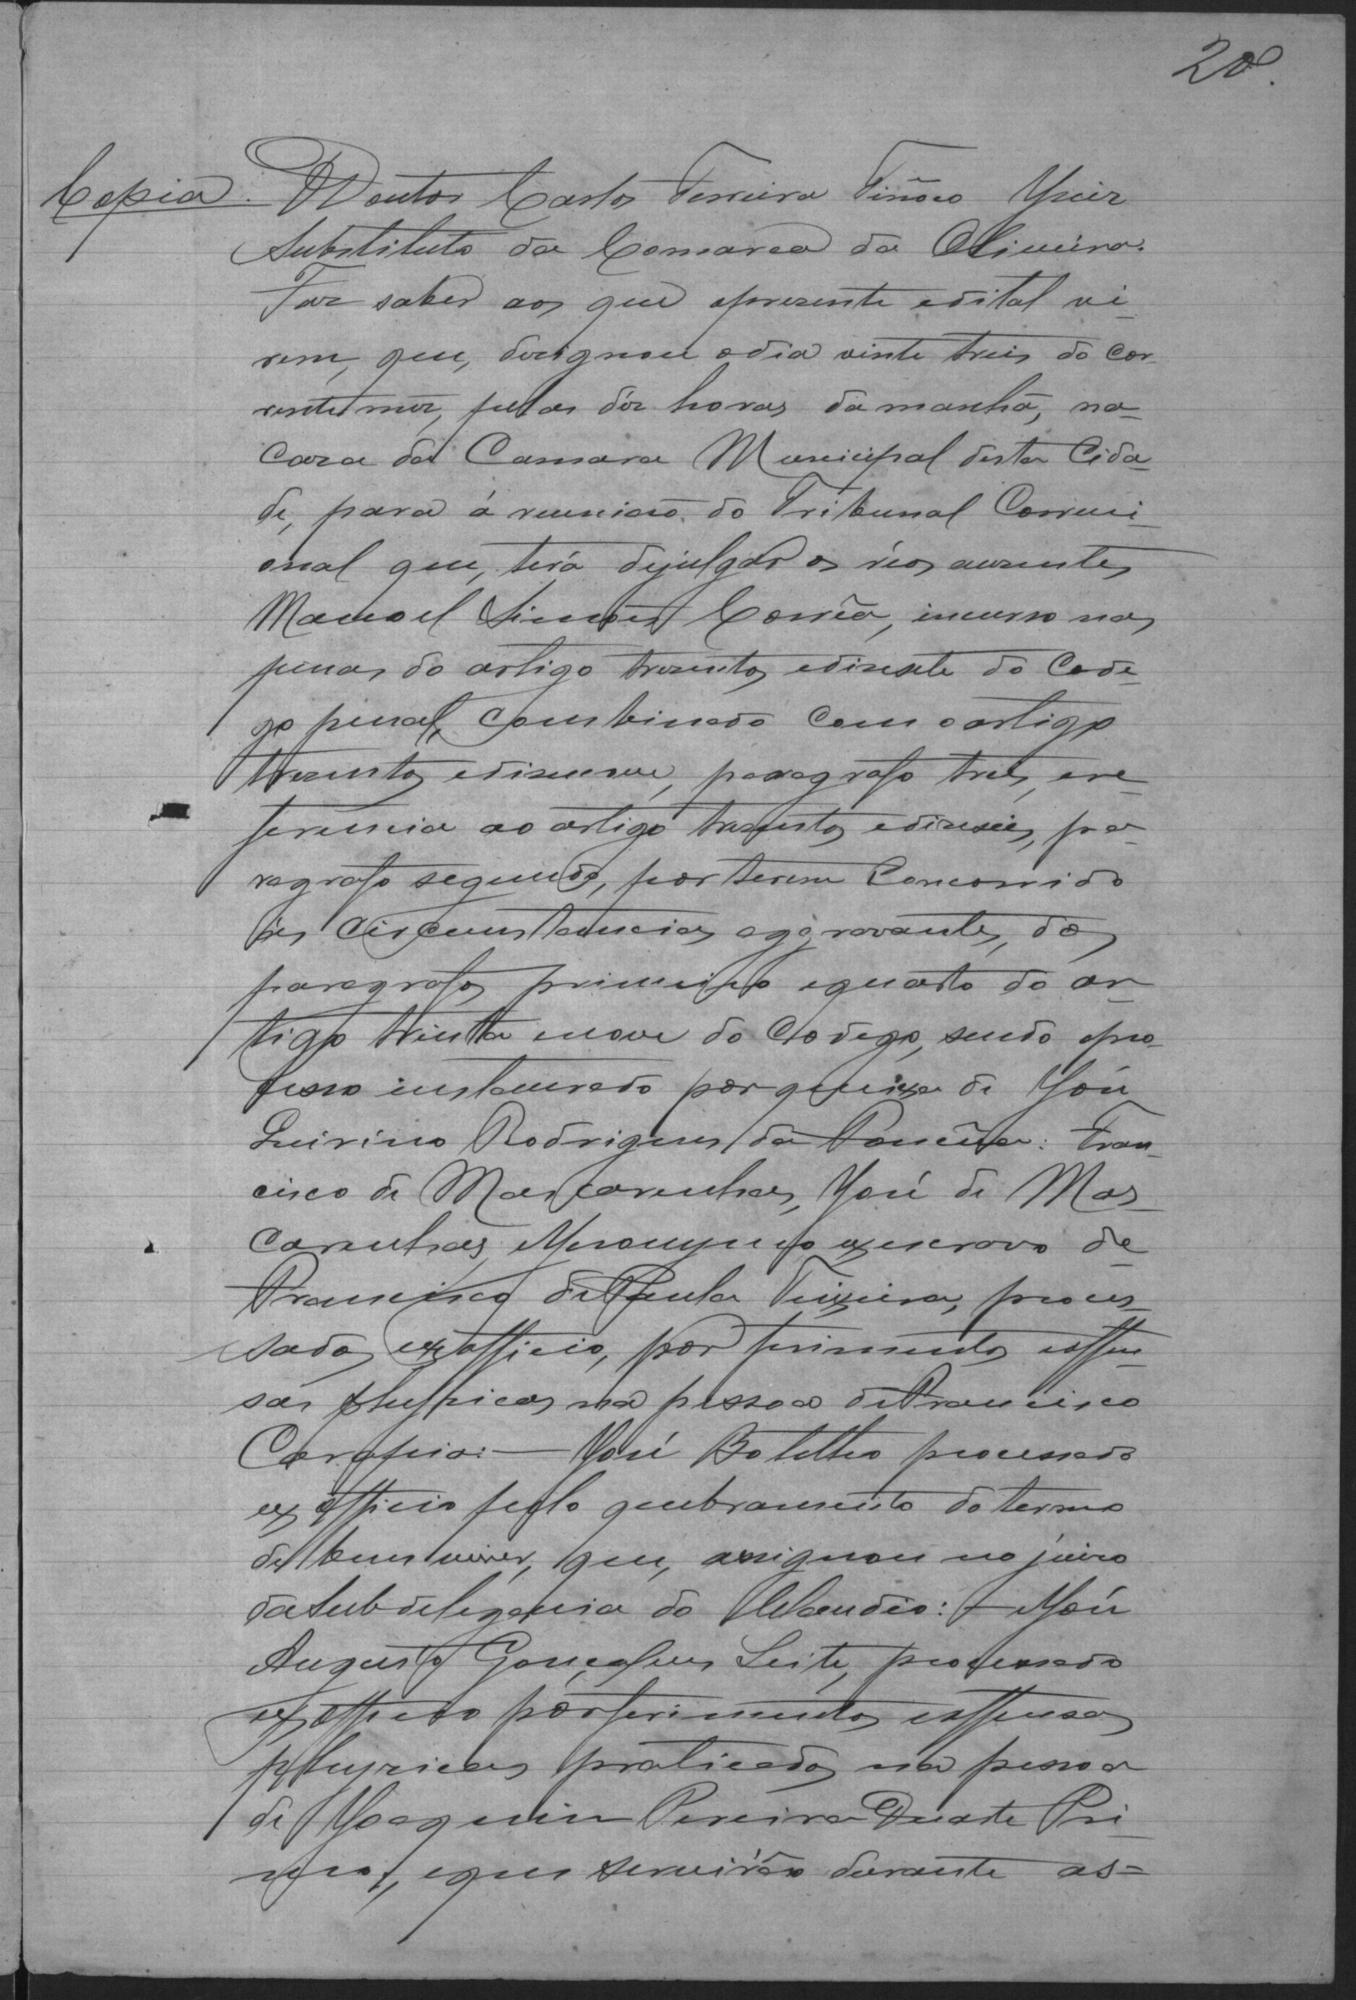 20.
Copia. Doutor Carlos Ferreira Tinôco Juiz
Substituto da Comarca da Oliveira.
Faz saber aos que opresente edital vi-
rem, que, designou odia vinte treis do cor-
rente mez, pelas déz horas da manhã, na
Caza da Camara Municipal desta Cida-
de, para á reunião do Tribunal Correici-
onal que, terá dejulgar os réos auzentes
Manoel Simões Corrêa, incurso nas
penas do artigo trezentos edizesete do Code-
go penal, combinado com oartigo
trezentos edizenove, paragrafo tres, ere-
ferencia ao artigo trezentos edizeseis, pa-
ragrafo segundo, por terem Concorrido
as Circumstancias aggravantes, dos
paragrafos primeiro equarto do ar-
tigo trinta enove do Codego, sendo opro-
cesso instaurado por queixa de José
Quirino Rodrigues da : Fran-
cisco de Mascarenhas, José de Mas-
carenhas, Jeronymo exescravo de
Francisco de Paula Teixeira, proces-
sados exofficio, por ferimentos eoffen-
sas phypicas na pessoa deFrancisco
: — José Botelho processado
ex officio pelo quebramento dotermo
de bem viver, que, assignou no juizo
dasubdelegacia do Claudio: — José
Augusto Gonçalves Leite, processado
ex officio porferimentos eoffensas
phyzicas praticados na pessoa
de Joaquim Pereira Duarte Pri-
mo, eque servirão durante as=